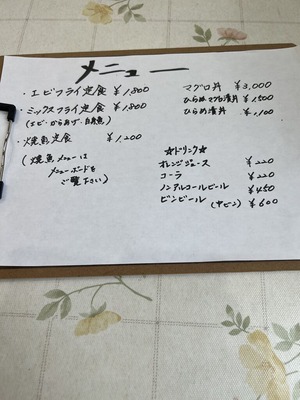 メニュー
・エビフライ定食 ¥1,800
・ミックスフライ定食 ¥1,800
(エビ・からあげ・白身魚)
・焼魚定食 ¥1,200
(焼魚メニューは
メニューボードを
ご覧下さい)
マグロ丼 ¥3,000
ひらめマグロ漬丼 ¥1,500
ひらめ漬丼 ¥1,100
☆ドリンク☆
オレンジジュース ¥220
コーラ ¥220
ノンアルコールビール ¥450
ビンビール (中ビン) ¥600